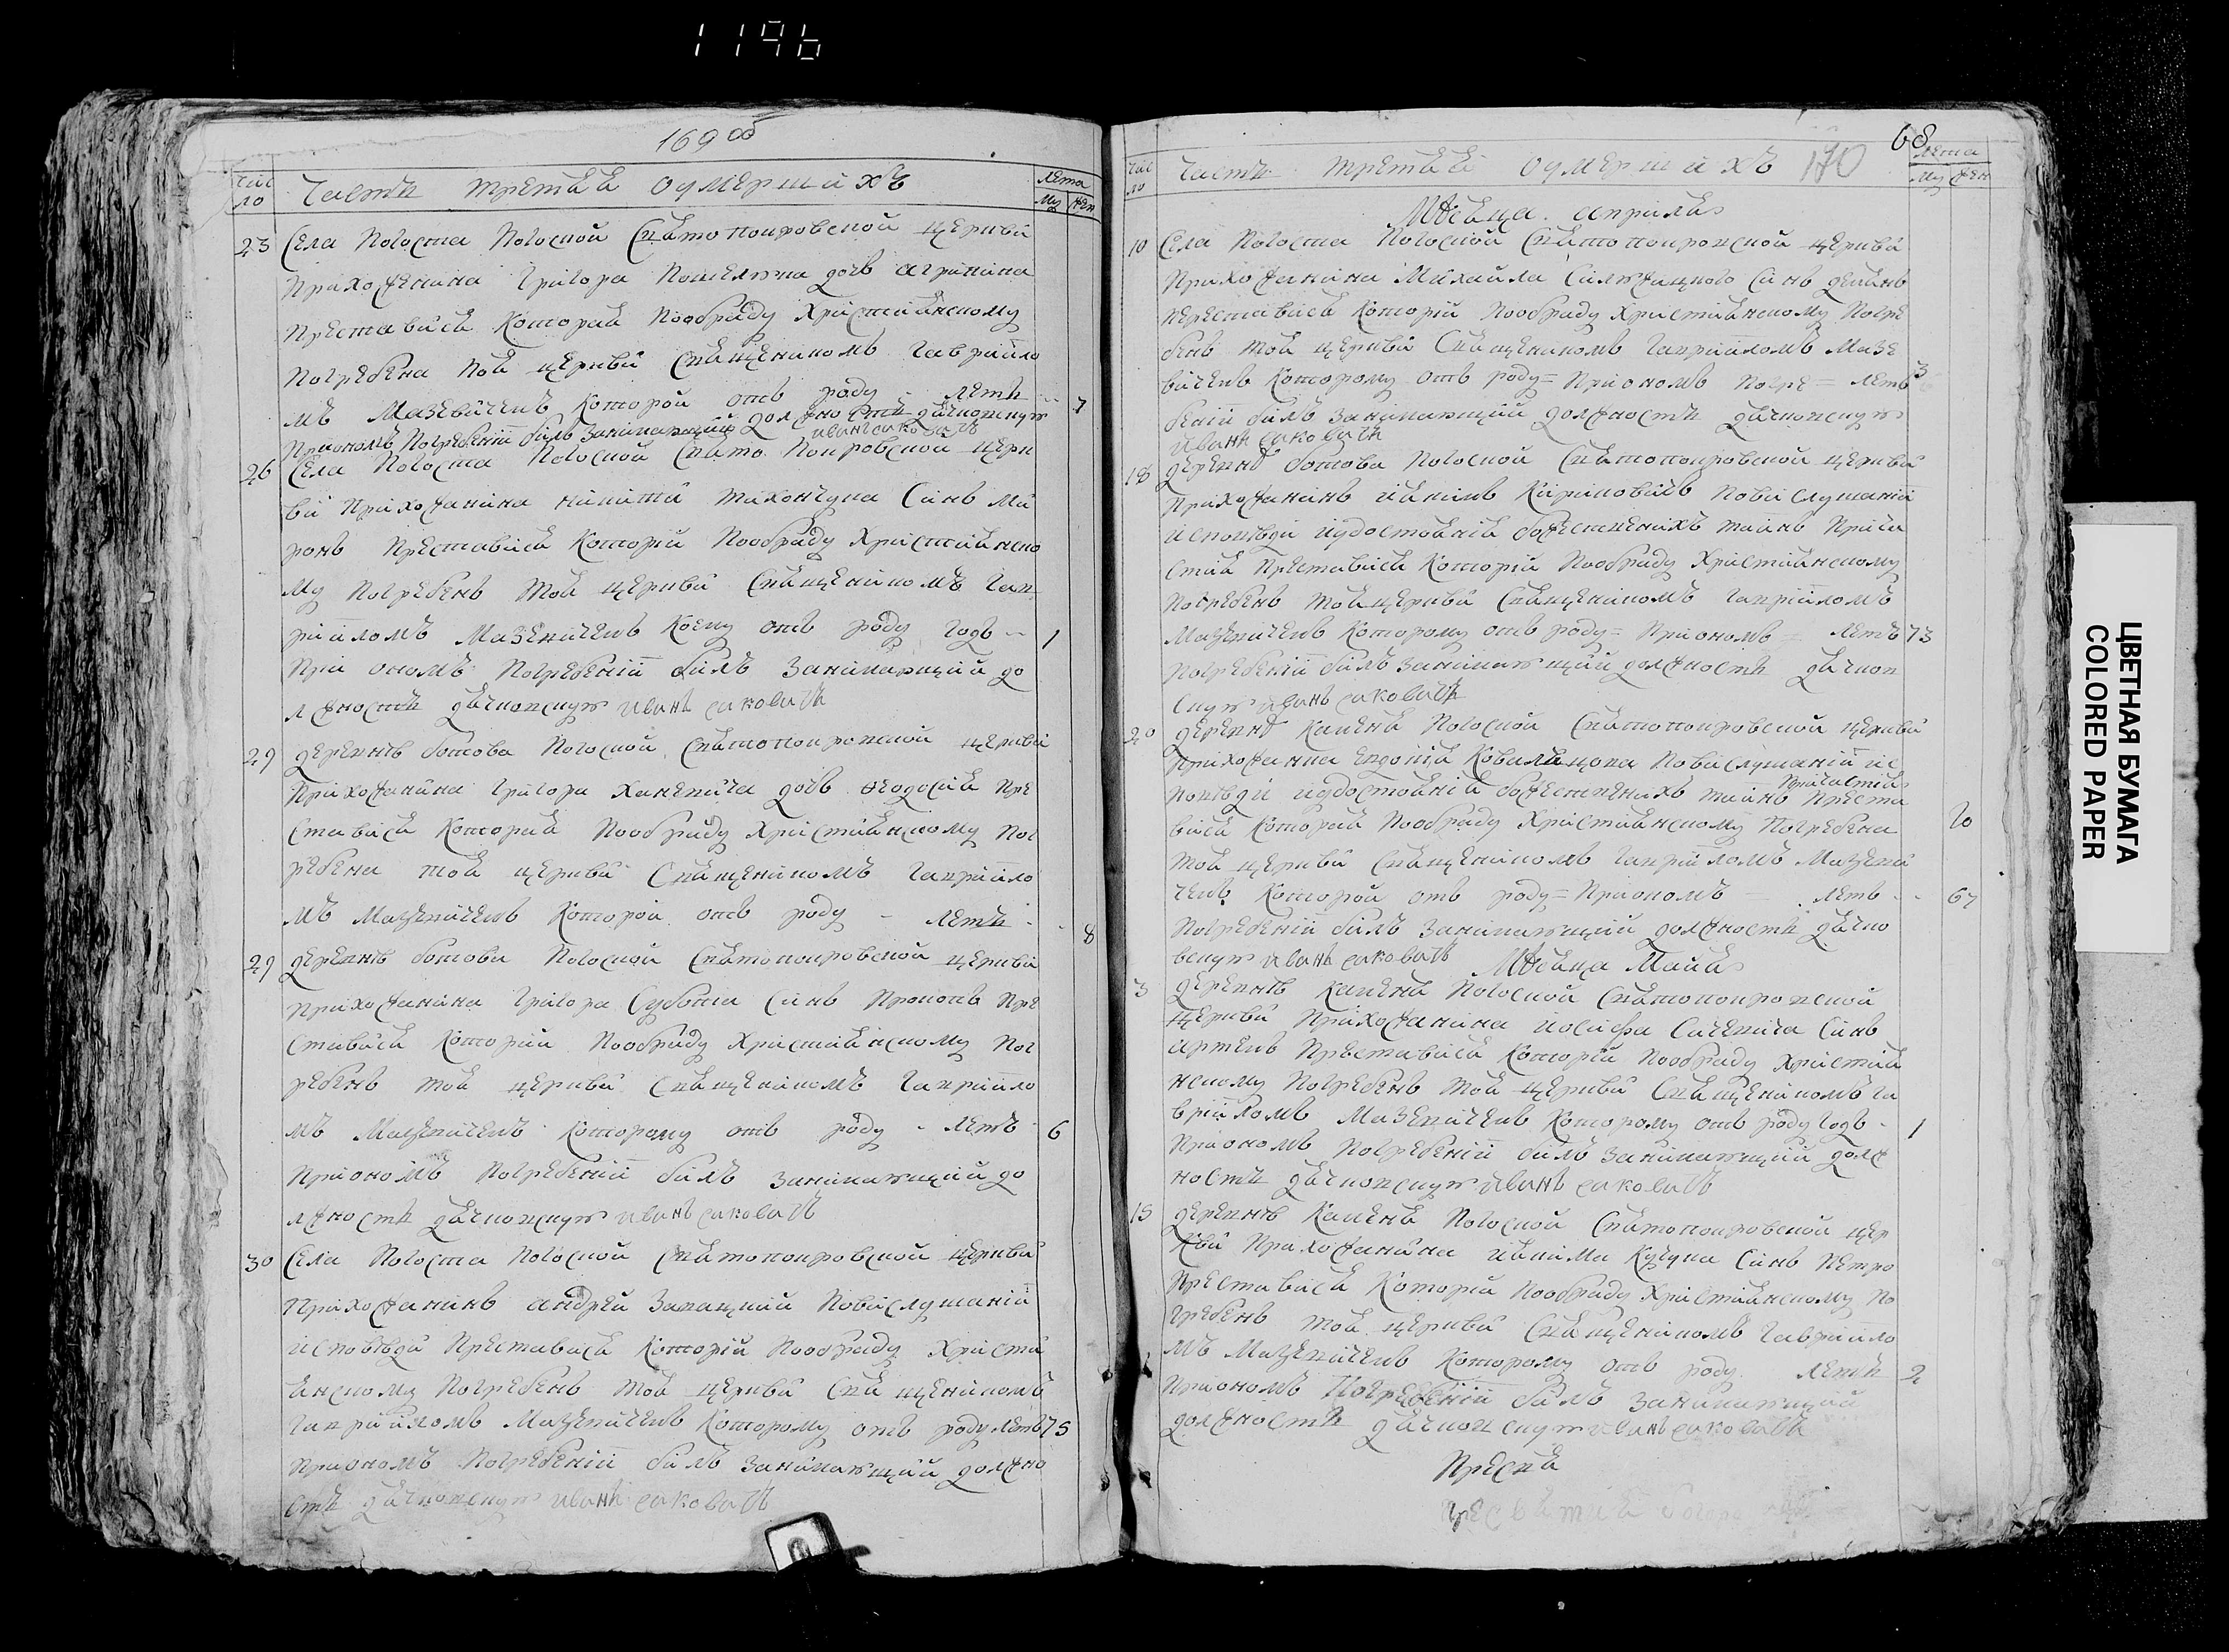 1196
169 об
Чис
ло
Часть третья оумершихъ
лета
Му Жен
23 Села Погоста Погоской Святопокровской церкви
Прихожанина Григора дочь Агрипина
Преставися Которая Пообряду Християнскому
Погребена той церкви Священикомъ Гавриило
мъ Мазевичемъ Которой отъ роду летъ 7
Приономъ Погребении билъ Занимающий должность дячковскую иванъ саковичъ
26 Села Погоста Погоской Свято Покровской церк
ви Прихожанина никити Тихончука Синъ Ми
ронъ Преставися Которий Пообряду Християнско
му Погребенъ той церкви Священикомъ Гав
рииломъ Мазевичемъ Коему отъ роду годъ 1
При ономъ Погребении билъ Занимающий до
лжность дячковскую иванъ саковичъ
29 деревнѣ Ботова Погоской Святопокровской церкви
Прихожанина Григора Ханевича дочь Феодосия Пре
ставися Которая Пообряду Християнскому Пог
ребена той церкви Священикомъ Гавриило
мъ Мазевичемъ Которой отъ роду летъ 8
29 деревнѣ Ботови Погоской Святопокровской церкви
Прихожанина Григора Субботи Синъ Прокопъ Пре
ставися Которий Пообряду Християнскому Пог
ребенъ той церкви Священикомъ Гавриило
мъ Мазевичемъ Которому отъ роду летъ 6
Приономъ Погребении билъ Занимающий до
лжность дячковскую иванъ саковичъ
30 Села Погоста Погоской Святопокровской церкви
Прихожанинъ андрей Повислушании
исповѣди Преставися Которий Пообряду Христи
янскому Погребенъ той церкви Священикомъ
Гаврииломъ Мазевичемъ Которому отъ роду летъ 75
Приономъ Погребении билъ Занимающий должно
сть дячковскую иванъ саковичъ
68
Чис
ло
Часть третья оумершихъ 170
лета
Му Жен
Мѣсяца априля
10 Села Погоста Погоской Святопокровской церкви
Прихожанина Михайла Синъ
переставися Которий Пообряду Християнскому Погре
бенъ той церкви Священикомъ Гаврииломъ Мазе
вичемъ Которому отъ роду = Приономъ Погре = летъ 3
бении билъ Занимающий должность дячковскую
иванъ саковичъ
18 деревнѣ Ботова Погоской Святопокровской церкви
Прихожанинъ Кириловичъ Повислушании
исповѣди иудостояния божественихъ таинъ Прича
стия Преставися Которий Пообряду Християнскому
Погребенъ той церкви Священикомъ Гаврииломъ
Мазевичемъ Которому отъ роду = Приономъ = летъ 73
Погребении билъ Занимающий должность дячков
скую иванъ саковичъ
20 деревнѣ Каменя Погоской Святопокровской церкви
Прихожанка Евдокия Повислушании ис
повѣди иудостояния божественихъ таинъ Причастия Преста
вися Которая Пообряду Християнскому Погребена 70
той церкви Священикомъ Гаврииломъ Мазеви
чемъ Которой отъ роду = Приономъ = летъ 67
Погребении билъ Занимающий должность дячко
вскую иванъ саковичъ Мѣсяца Мая
3 деревнѣ Каменя Погоской Святопокровской
церкви Прихожанина иосифа Синъ
артемъ Преставися Которий Пообряду Християн
скому Погребенъ той церкви Священикомъ Га
врииломъ Мазевичемъ Которому отъ роду годъ 1
Приономъ Погребении билъ Занимающий долж
ность дячковскую иванъ саковичъ
15 деревнѣ Каменя Погоской Святопокровской цер
кви Прихожанина Синъ Петро
Преставися Которий Пообряду Християнскому По
гребенъ той церкви Священикомъ Гавриило
мъ Мазевичемъ Которому отъ роду летъ 2
Приономъ Погребении билъ Занимающий
должность дячковскую иванъ саковичъ
Пресвя
ЦВЕТНАЯ БУМАГА
COLORED PAPER